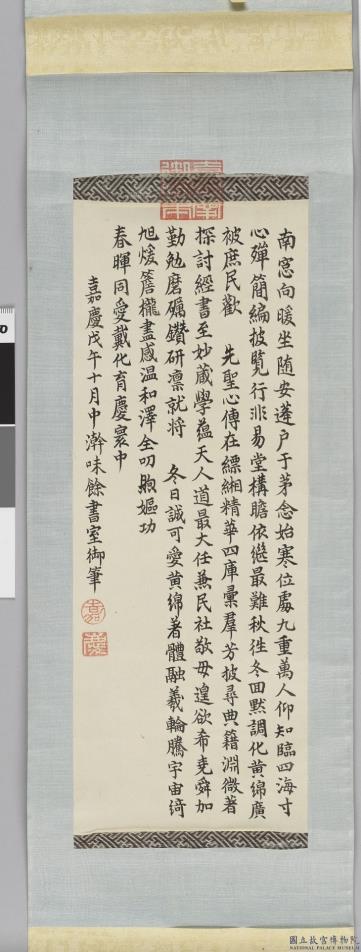 南窓向暖坐随安蓬户于茅念始寒位處九重萬人仰知臨四海寸
心殫 簡編披覽行非易堂構瞻依繼最難秋徃冬回默調化黄綿廣
被庶民歡 先聖心傳在縹緗精華四庫彙羣芳披尋典籍淵微著
探討經書至妙藏學蘊天人道最大任兼民社敢毋遑欲希堯舜加
勤勉磨礪鑽研凛就將 冬日誠可愛黄綿著體融羲輪騰宇宙綺
旭煖簷櫳盡感温和澤全叨煦嫗功
春暉同愛戴化育慶寰中
嘉慶戊午十月中澣味餘書室御筆
國立故宮博物院
NATIONAL PALACE MUSEUM